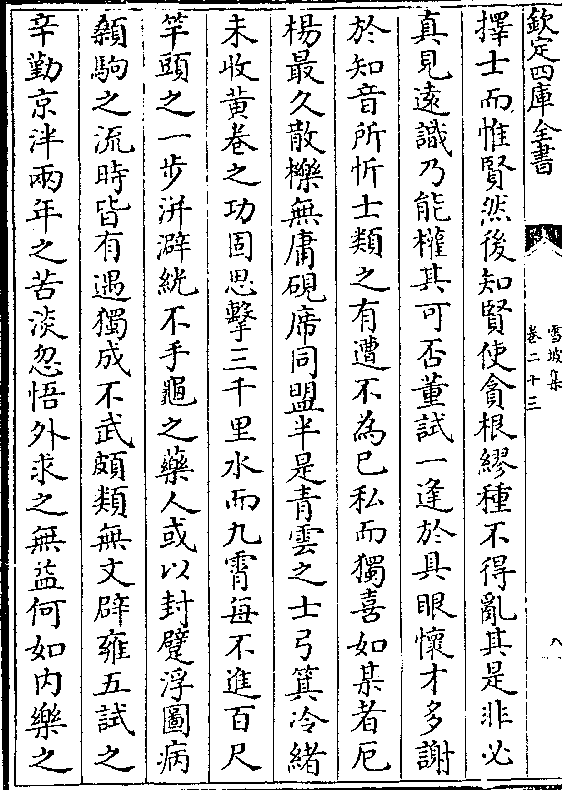 欽定四庫全書
雪坡集
卷二十三
八
擇士而惟賢然後知賢使貪根繆種不得亂其是非必
真見遠識乃能權其可否董試一逢於具眼懷才多謝
於知音所忻士類之有遭不為已私而獨喜如某者厄
楊最久散櫟無庸硯席同盟半是青雲之士弓箕冷緒
未收黃卷之功固思擊三千里水而九霄每不進百尺
竿頭之一步洴澼絖不手龜之藥人或以封躄浮圖病
顙駒之流時皆有遇獨成不武頗類無文辟雍五試之
辛勤京泮兩年之苦淡忽悟外求之無益何如内樂之